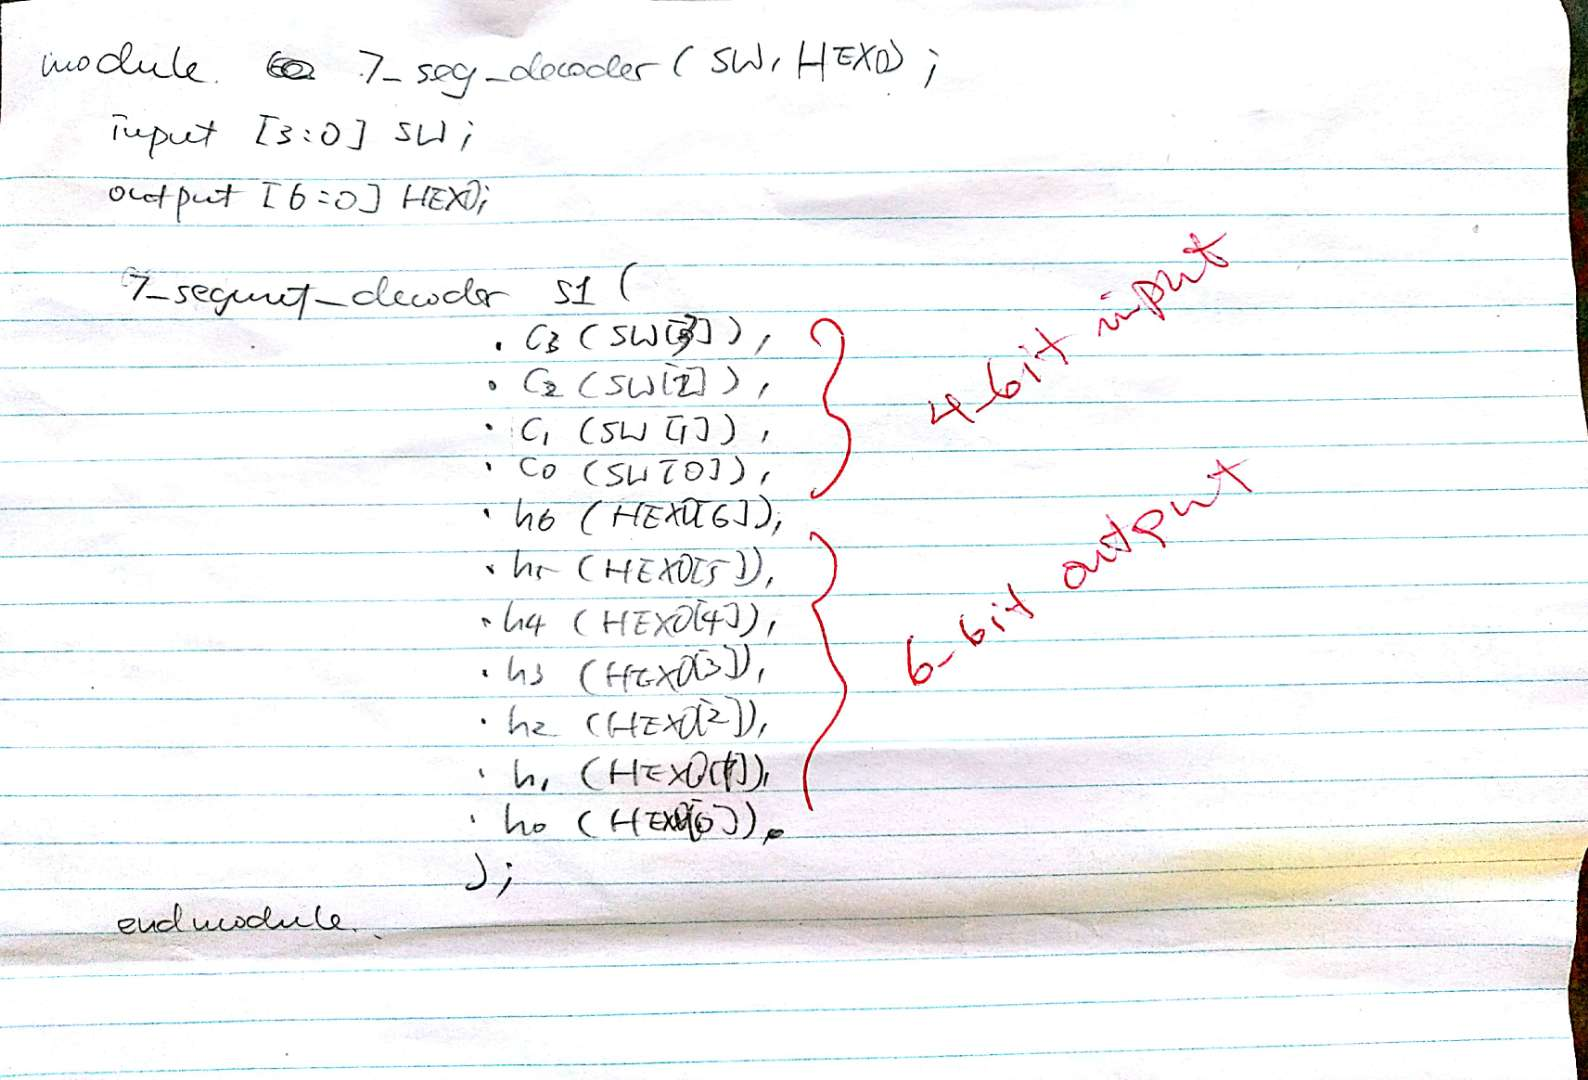 module 7_seg_decoder ( SW, HEX0) ;
input [3:0] SW ;
output [6:0] HEX0;
7_segment_decoder S1 (
. C3 ( SW[3] ) ,
. C2 ( SW[2] ) ,
. C1 ( SW [1] ) ,
. C0 ( SW [0] ) ,
. h6 ( HEX0[6] ),
. h5 ( HEX0[5] ),
. h4 ( HEX0[4] ),
. h3 ( HEX0[3] ),
. h2 ( HEX0[2] ),
. h1 ( HEX0[1] ),
. h0 ( HEX0[0] )
) ;
endmodule.
4-bit input
6-bit output